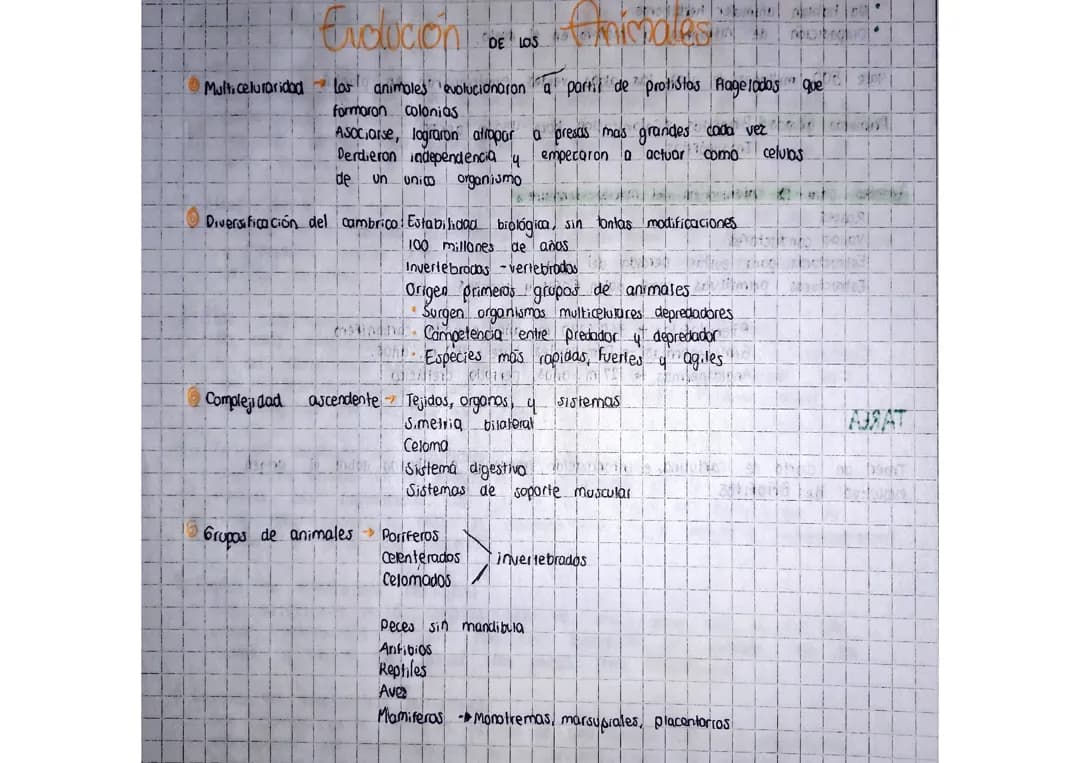 Evolución DE LOS Animales
Multiceluraridad → Los animales evolucionaron a partir de protistas flagerados que
formaron colonias
Asociarse, lograron atrapar a presas mas grandes cada vez
Perdieron independencia y empecaron a actuar como celulas
de un unico organismo
Diversificación del cambrico: Estabilidad biológica, sin tantas modificaciones
100 millones de años
Invertebrados - vertebrados
Origen primeros grupos de animales
• Surgen organismos multicelulares depredadores
• Competencia entre predador y depredador
• Especies mas rapidas, fuertes y agiles
Complejidad ascendente → Tejidos, organos, y sistemas
Simetria bilateral
Celoma
Sistema digestivo
Sistemas de soporte muscular
TAREA
Grupos de animales → Poriferos
Celenterados
invertebrados
Celomados
Peces sin mandibula
Anfibios
Reptiles
Aves
Mamiferos → Monotremas, marsupiales, placentarios